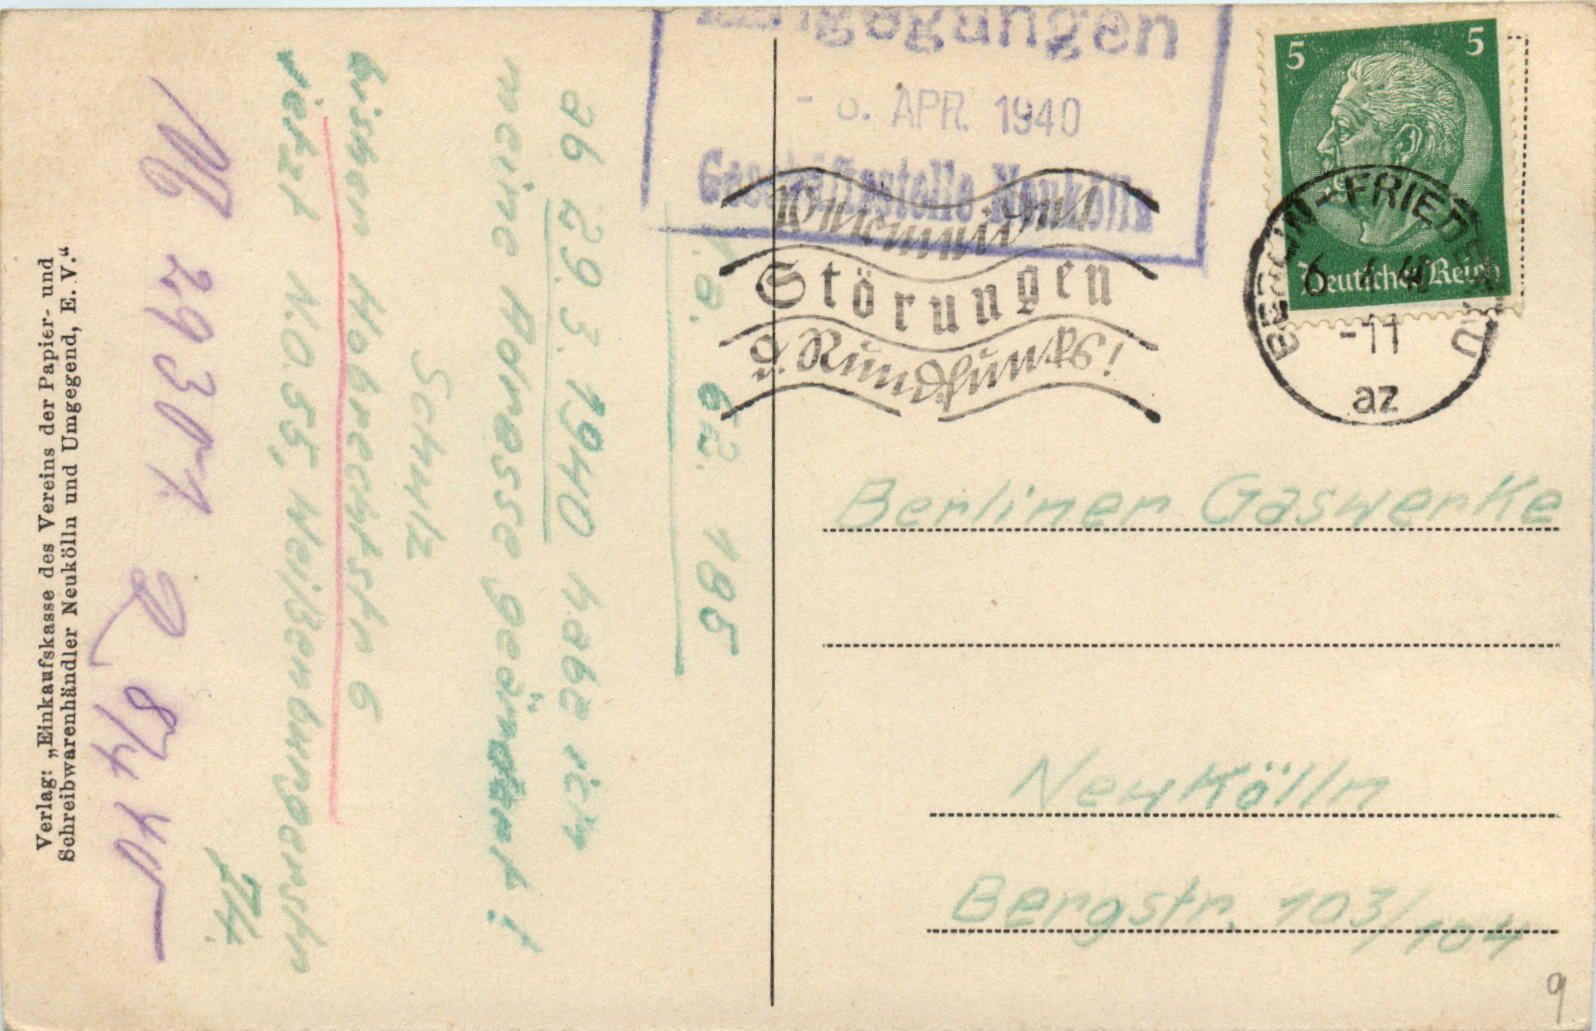 Eingegangen
APR. 1940
Geschäftsstelle Neukölln
5 5
Deutsches Reich
BERLIN-FRIEDENAU
6. 4. 40
-11
az
Vermeidet
Störungen
d. Rundfunks!
Berliner Gaswerke
Neukölln
Bergstr. 103/104
9
62. 185
ab 29.3.1940 habe ich
meine Adresse geändert!
Schulz
bisher Hobrechtstr 6
jetzt N.O 55, Weißenburgerstr
74.
29307
8/4 40
Verlag: „Einkaufskasse des Vereins der Papier- und
Schreibwarenhändler Neukölln und Umgegend, E. V.“